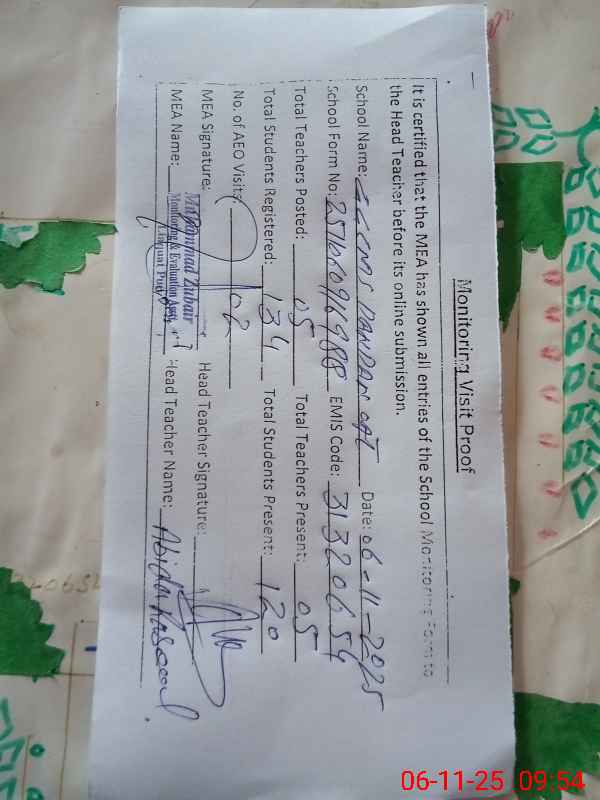 Monitoring Visit Proof
It is certified that the MEA has shown all entries of the School Monitoring Form to
the Head Teacher before its online submission.
School Name: Date: 06-11-2025
School Form No: EMIS Code: 31320654
Total Teachers Posted: 05 Total Teachers Present: 05
Total Students Registered: 134 Total Students Present: 120
No. of AEO Visits: 02
MEA Signature: Head Teacher Signature:
MEA Name: Muhammad Zubair Head Teacher Name: Abida
Monitoring & Evaluation
06-11-25 09:54